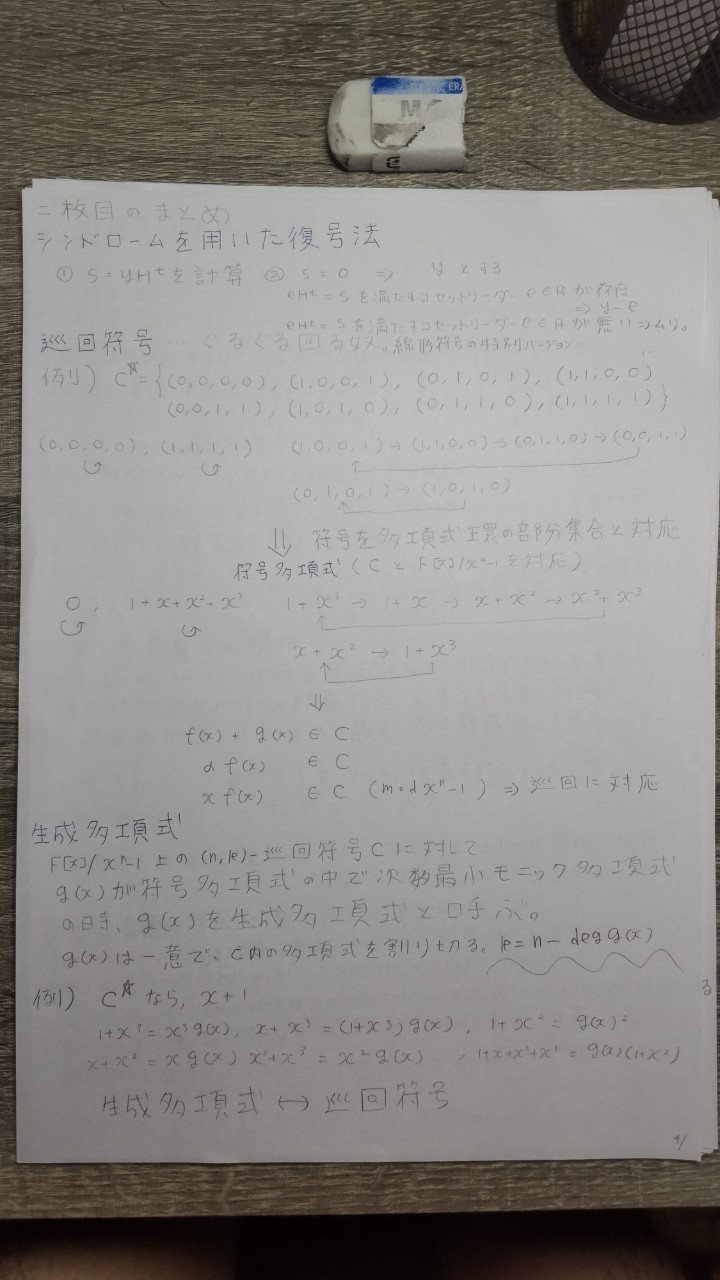 ERA
二枚目のまとめ
シンドロームを用いた復号法
① S = yHᵗ を計算 ② S = 0 ⇒ y とする
eHᵗ = S を満たすコセットリーダー e∈R が存在
⇒ y - e
eHᵗ = S を満たすコセットリーダー e∈R が無い ⇒ ムリ。
巡回符号 … ぐるぐる回るヤス。線形符号の特別バージョン
例) C☆ = {(0,0,0,0), (1,0,0,1), (0,1,0,1), (1,1,0,0)
(0,0,1,1), (1,0,1,0), (0,1,1,0), (1,1,1,1)}
(0,0,0,0), (1,1,1,1) (1,0,0,1) → (1,1,0,0) → (0,1,1,0) → (0,0,1,1)
(0,1,0,1) → (1,0,1,0)
⇓ 符号を多項式環の部分集合と対応
符号多項式 (C と F[x]/xⁿ-1 を対応)
0, 1+x+x²+x³ 1+x³ → 1+x → x+x² → x²+x³
x+x² → 1+x³
⇓
f(x) + g(x) ∈ C
α f(x) ∈ C
x f(x) ∈ C (mod xⁿ-1) ⇒ 巡回に対応
生成多項式
F[x]/xⁿ-1 上の (n,k)-巡回符号 C に対して
g(x) が符号多項式の中で次数最小モニック多項式
の時、g(x) を生成多項式と呼ぶ。
g(x) は一意で、C内の多項式を割り切る。k = n - deg g(x)
例) C☆ なら, x+1
1+x³ = x³g(x), x+x³ = (1+x³)g(x), 1+x² = g(x)²
x+x² = x g(x) x²+x³ = x² g(x), 1+x+x²+x³ = g(x)(1+x²)
生成多項式 ↔ 巡回符号
る